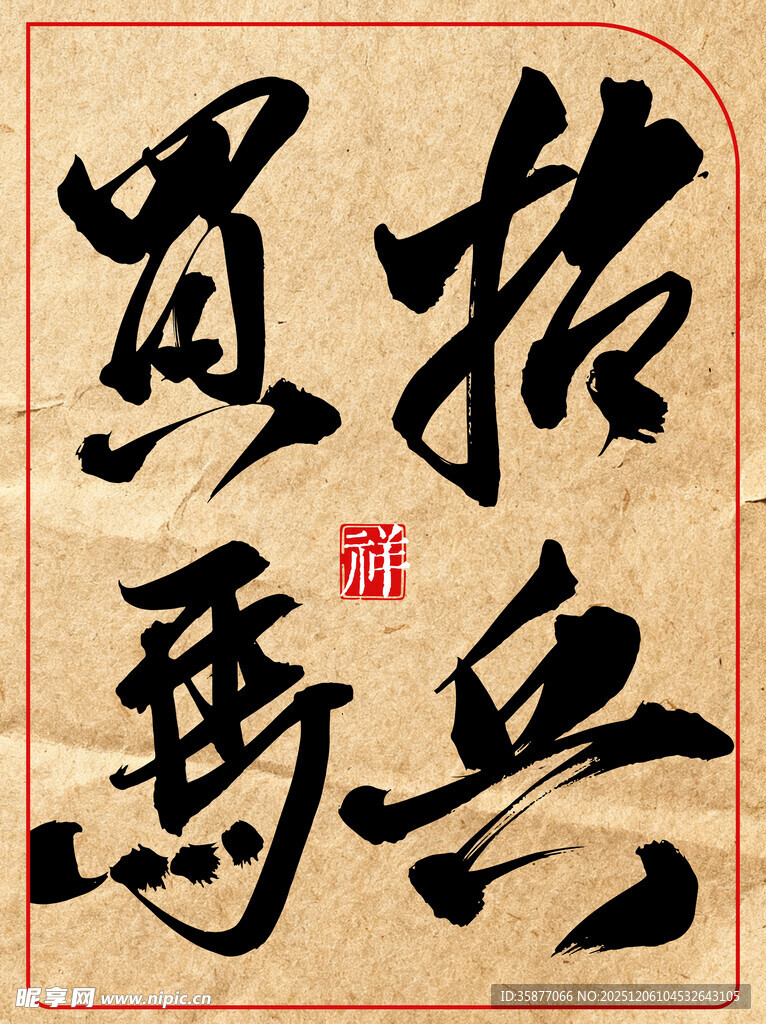 招兵
買馬
祥
昵享网 www.nipic.cn
ID:35877066 NO:20251206104532643105